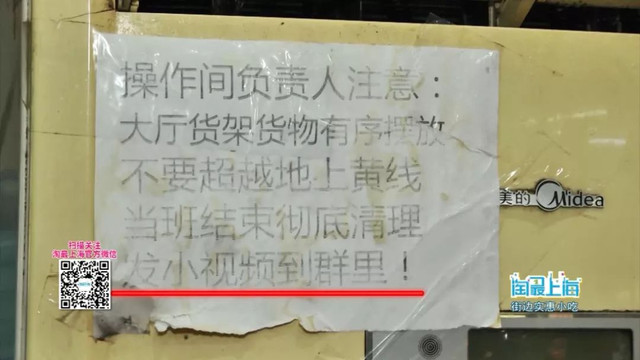 操作间负责人注意：
大厅货架货物有序摆放
不要超越地上黄线
当班结束彻底清理
发小视频到群里！
美的 Midea
扫描关注
淘最上海官方微信
淘最上海
街边实惠小吃